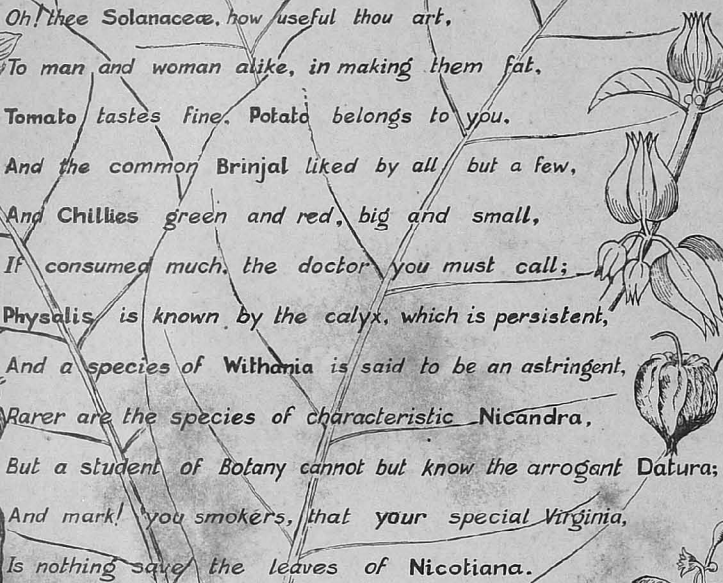 Oh! thee Solanaceæ, how useful thou art,
To man and woman alike, in making them fat,
Tomato tastes fine, Potato belongs to you,
And the common Brinjal liked by all, but a few,
And Chillies green and red, big and small,
If consumed much, the doctor you must call;
Physalis is known by the calyx, which is persistent,
And a species of Withania is said to be an astringent,
Rarer are the species of characteristic Nicandra,
But a student of Botany cannot but know the arrogant Datura;
And mark! you smokers, that your special Virginia,
Is nothing save the leaves of Nicotiana.